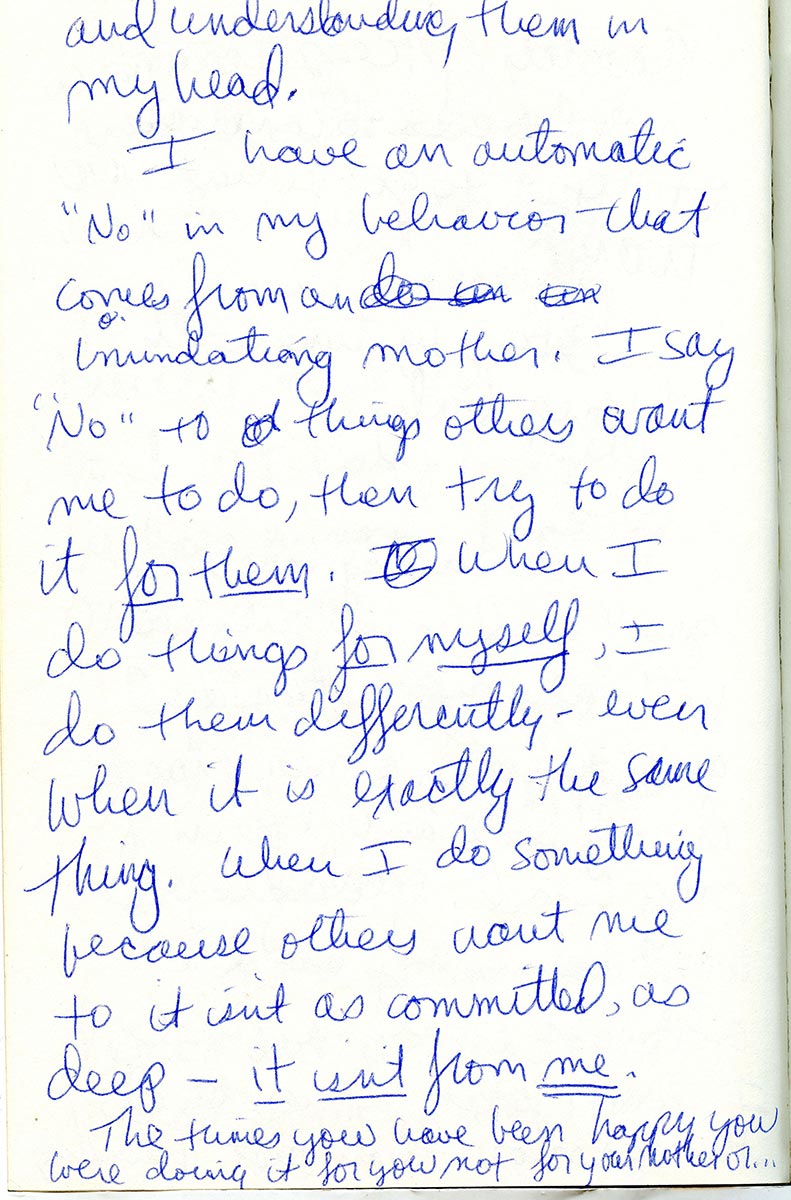 and understanding them in
my head.
I have an automatic
"No" in my behavior that
comes from an
inundating mother. I say
"No" to things others want
me to do, then try to do
it for them. When I
do things for myself, I
do them differently - even
when it is exactly the same
thing. When I do something
because others want me
to it isn't as committed, as
deep - it isn't from me.
The times you have been happy you
were doing it for you not for your mother or...